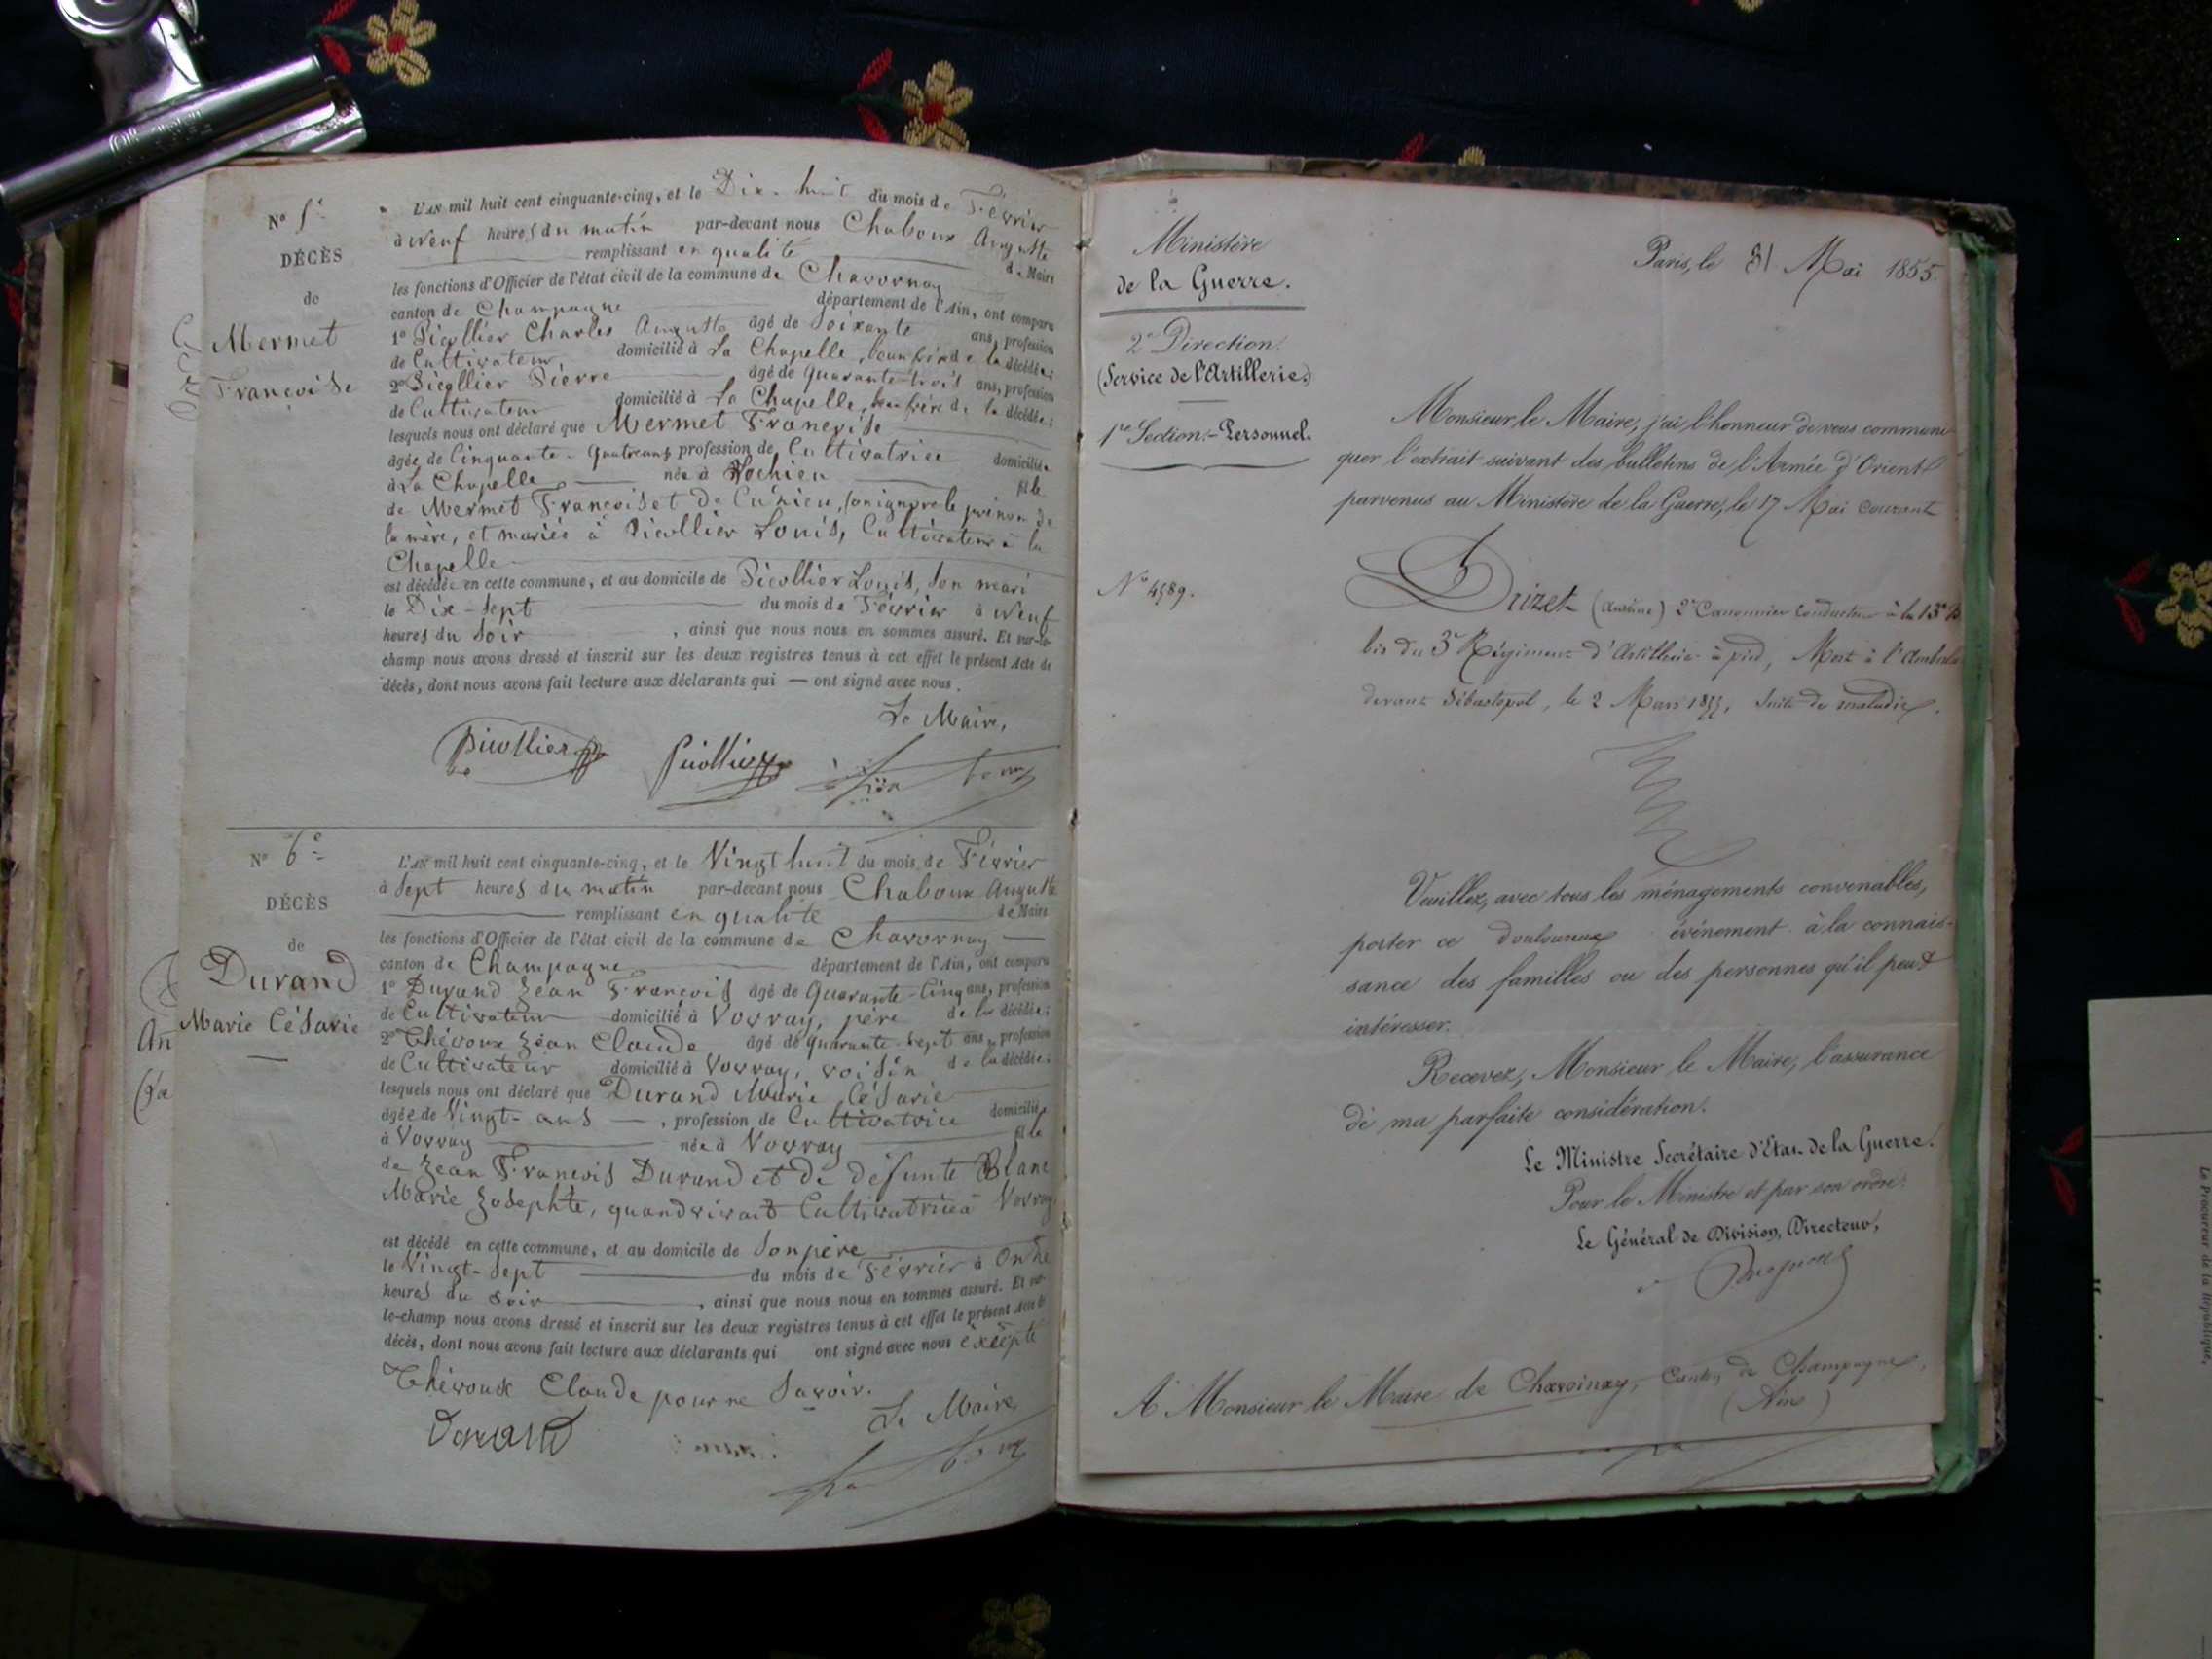 N° 5e
DÉCÈS
de
Mermet
Françoise
L'AN mil huit cent cinquante-cinq, et le Dix-huit du mois de Février
à Neuf heures du matin par-devant nous Chaboux Auguste
remplissant en qualité de Maire
les fonctions d'Officier de l'état civil de la commune de Chavornay
canton de Champagne département de l'Ain, ont comparu
1° Picollier Charles Auguste âgé de Soixante ans, profession
de Cultivateur domicilié à La Chapelle, beau frère de la décédée;
2° Picollier Pierre âgé de Quarante-trois ans, profession
de Cultivateur domicilié à La Chapelle, beau frère de la décédée;
lesquels nous ont déclaré que Mermet Françoise
âgée de Cinquante-Quatre ans profession de Cultivatrice domiciliée
à La Chapelle née à Lochieu fille
de Mermet François et de Cuzieu, (on ignore le prénom de
la mère, et mariée à Picollier Louis, Cultivateur à la
Chapelle
est décédée en cette commune, et au domicile de Picollier Louis, son mari
le Dix-Sept du mois de Février à Neuf
heures du Soir, ainsi que nous nous en sommes assuré. Et sur-le-
champ nous avons dressé et inscrit sur les deux registres tenus à cet effet le présent Acte de
décès, dont nous avons fait lecture aux déclarants qui — ont signé avec nous.
Le Maire,
Picollier Picollier
N° 6e
DÉCÈS
de
Durand
Marie Césarie
L'AN mil huit cent cinquante-cinq, et le Vingt huit du mois de Février
à Sept heures du matin par-devant nous Chaboux Auguste
remplissant en qualité de Maire
les fonctions d'Officier de l'état civil de la commune de Chavornay
canton de Champagne département de l'Ain, ont comparu
1° Durand Jean François âgé de Quarante-Cinq ans, profession
de Cultivateur domicilié à Vovray, père de la décédée;
2° Thévoux Jean Claude âgé de Quarante-Sept ans, profession
de Cultivateur domicilié à Vovray, voisin de la décédée;
lesquels nous ont déclaré que Durand Marie Césarie
âgée de Vingt-ans, profession de Cultivatrice domiciliée
à Vovray née à Vovray fille
de Jean François Durand et de défunte Blanc
Marie Josephte, quand vivait Cultivatrice à Vovray
est décédé en cette commune, et au domicile de Son père
le Vingt-Sept du mois de Février à Onze
heures du Soir, ainsi que nous nous en sommes assuré. Et sur-
le-champ nous avons dressé et inscrit sur les deux registres tenus à cet effet le présent Acte de
décès, dont nous avons fait lecture aux déclarants qui ont signé avec nous éxcépté
Thévoux Claude pour ne Savoir.
Le Maire
Durand
Ministère
de la Guerre.
2e Direction.
(Service de l'Artillerie.)
1re Section.-Personnel.
N° 4589.
Paris, le 31 Mai 1855.
Monsieur le Maire, j'ai l'honneur de vous communi-
quer l'extrait suivant des bulletins de l'Armée d'Orient
parvenus au Ministère de la Guerre, le 17 Mai courant
Drizet (Antoine) 2e Canonnier Conducteur à la 13e Bie
bis du 3e Régiment d'Artillerie à pied, Mort à l'Ambulance
devant Sébastopol, le 2 Mars 1855, Suite de maladie.
Veuillez, avec tous les ménagements convenables,
porter ce douloureux événement à la connais-
sance des familles ou des personnes qu'il peut
intéresser.
Recevez, Monsieur le Maire, l'assurance
de ma parfaite considération.
Le Ministre Secrétaire d'Etat de la Guerre.
Pour le Ministre et par son ordre.
Le Général de Division, Directeur,
A Monsieur le Maire de Chavoinay, Canton de Champagne,
(Ain)
Le Procureur de la République,